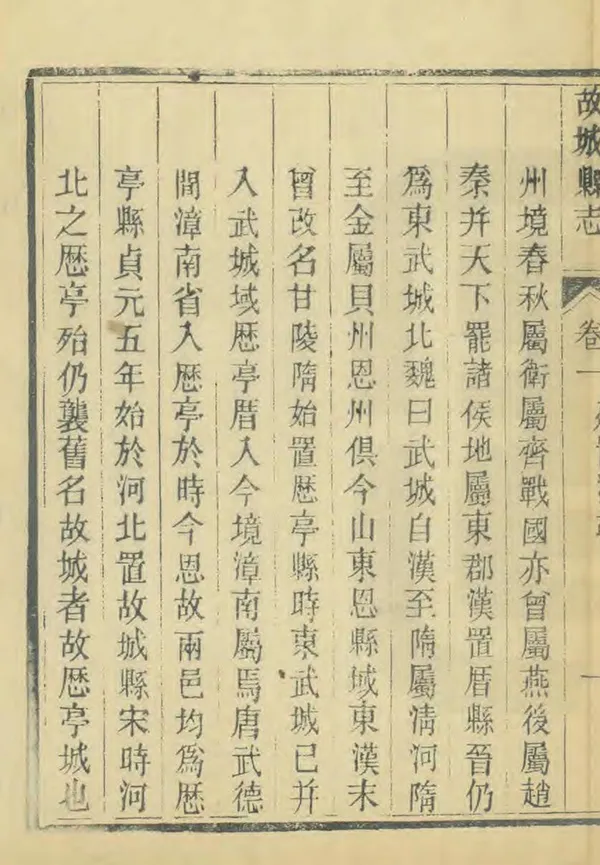 故城縣志
卷一
州境春秋屬衛屬齊戰國亦曾屬燕後屬趙
秦并天下罷諸侯地屬東郡漢置厝縣晉仍
爲東武城北魏曰武城自漢至隋屬淸河隋
至金屬貝州恩州俱今山東恩縣域東漢末
曾改名甘陵隋始置歷亭縣時東武城已并
入武城域歷亭厝入今境漳南屬焉唐武德
間漳南省入歷亭於時今恩故兩邑均爲歷
亭縣貞元五年始於河北置故城縣宋時河
北之歷亭殆仍襲舊名故城者故歷亭城也